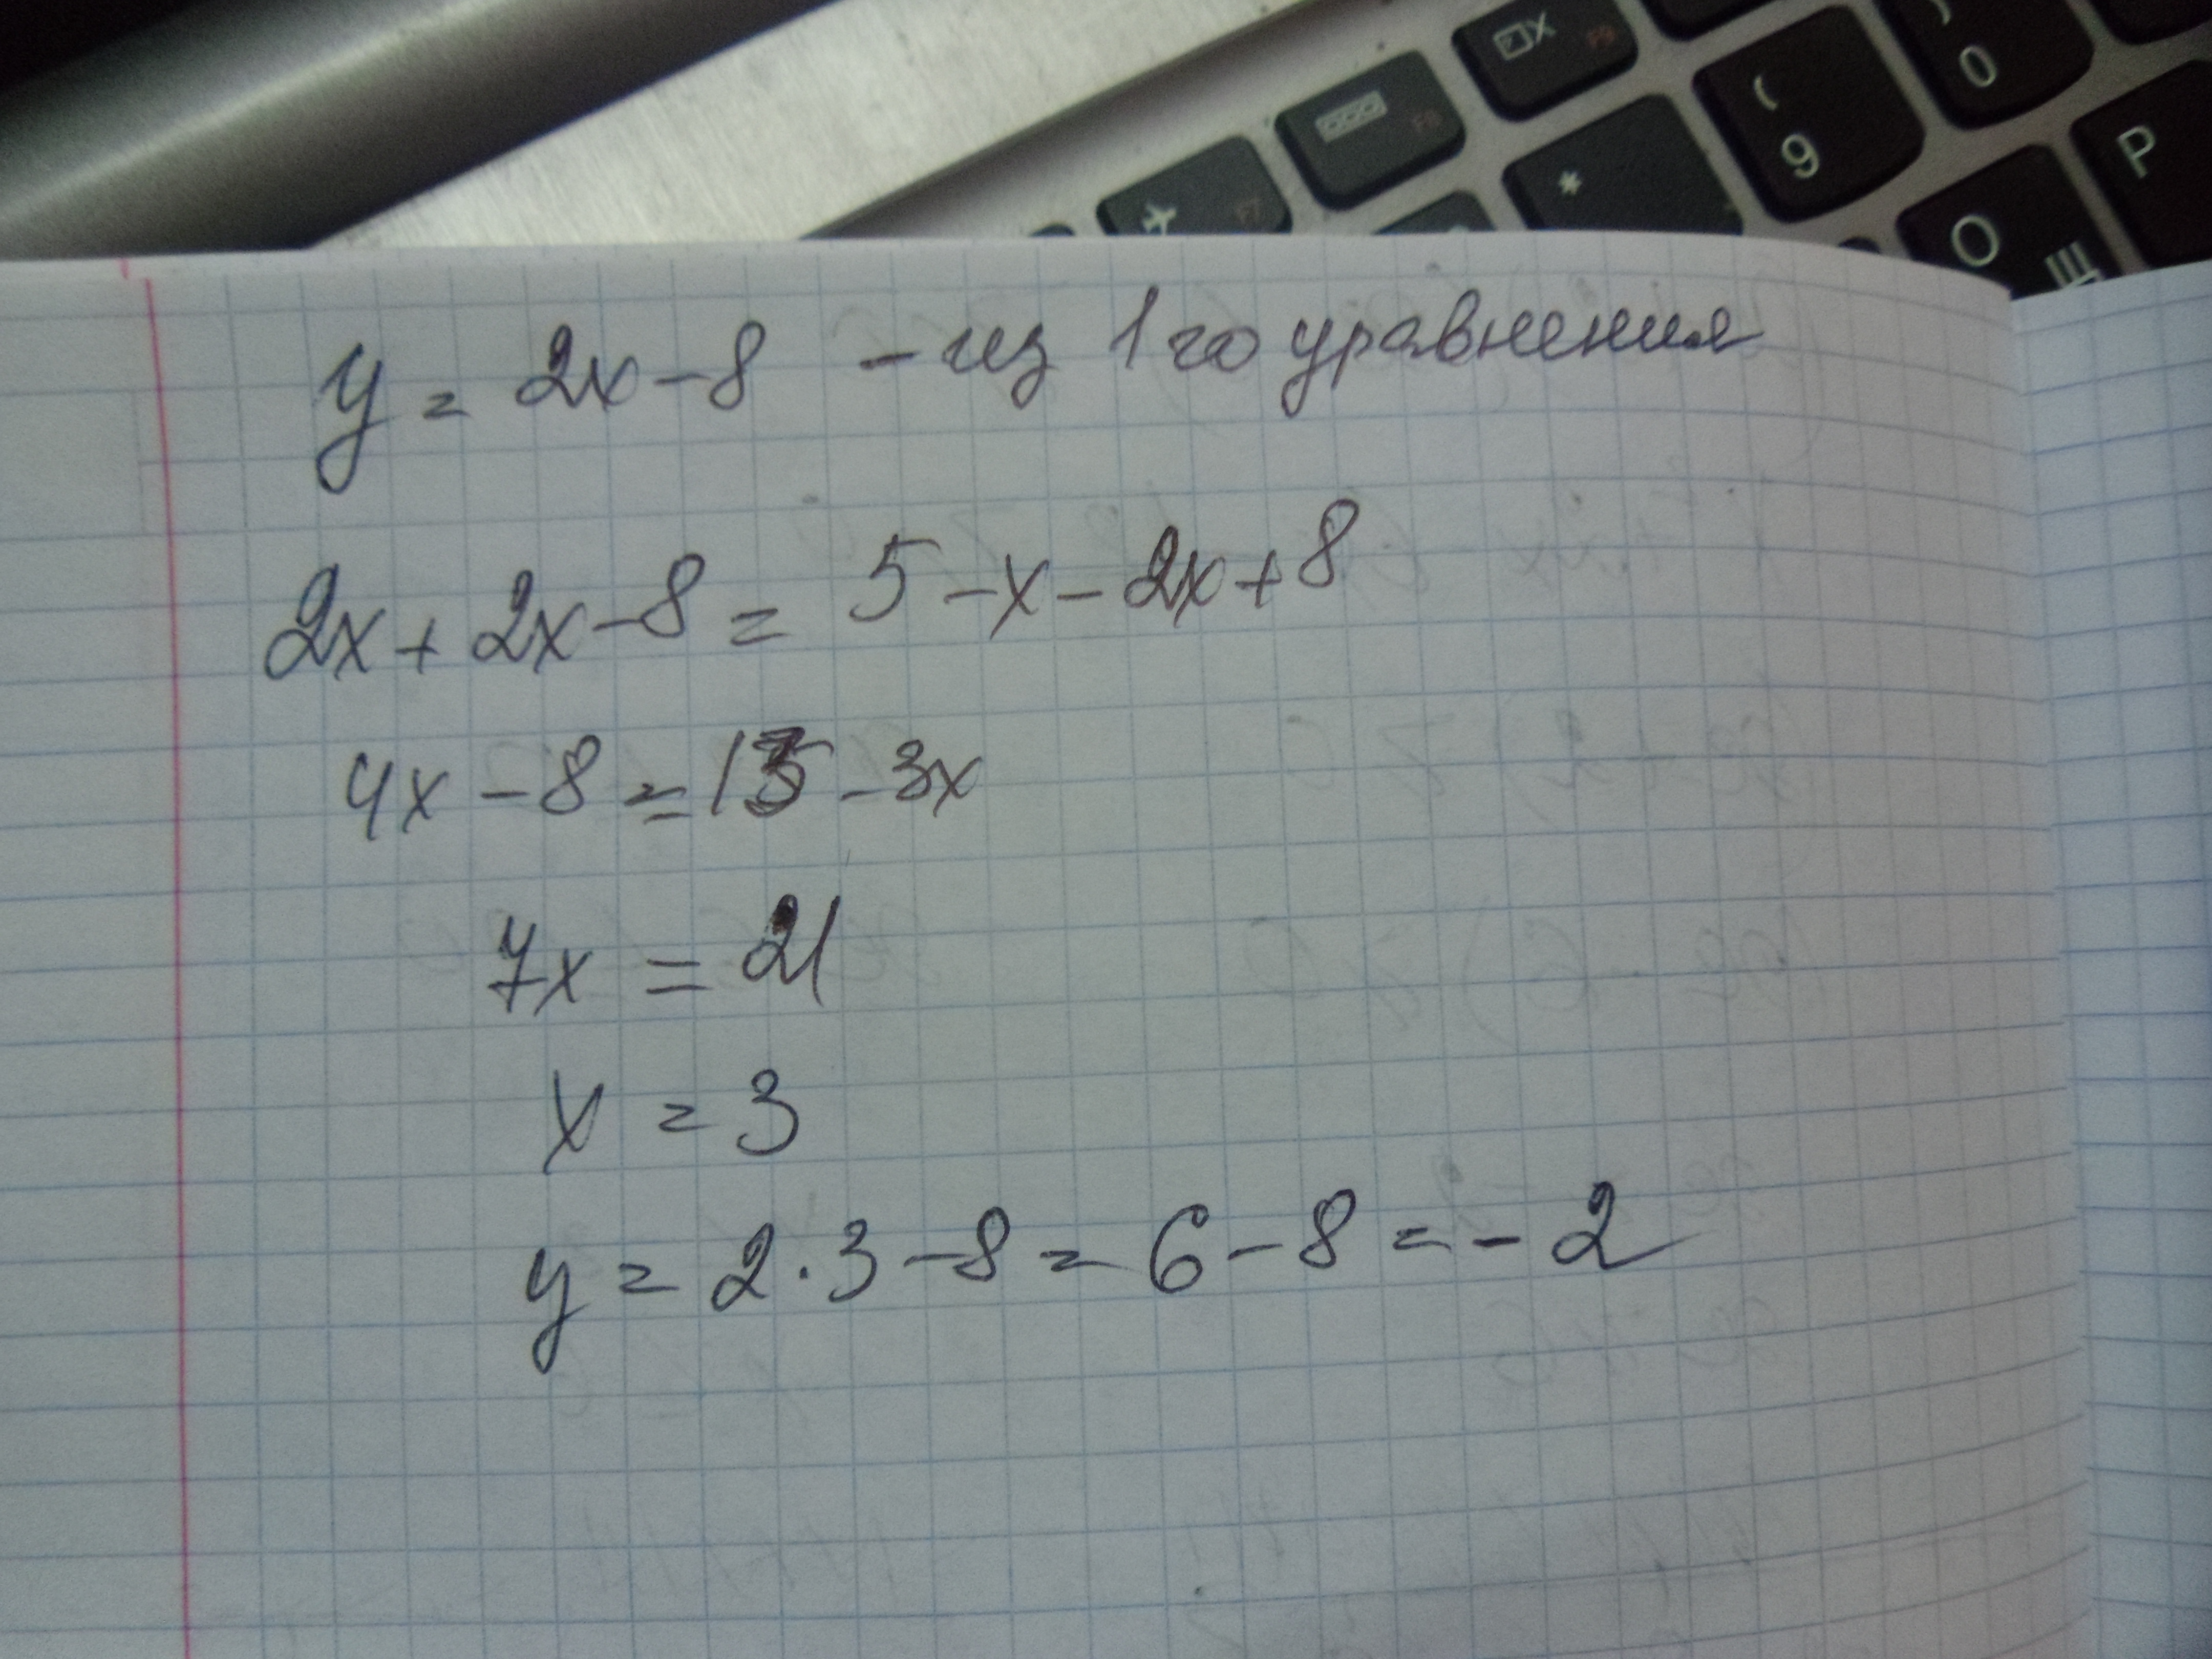 * ( 9 0
O Щ P
y = 2x - 8 - из 1 го уравнения
2x + 2x - 8 = 5 - x - 2x + 8
4x - 8 = 13 - 3x
7x = 21
x = 3
y = 2 · 3 - 8 = 6 - 8 = - 2